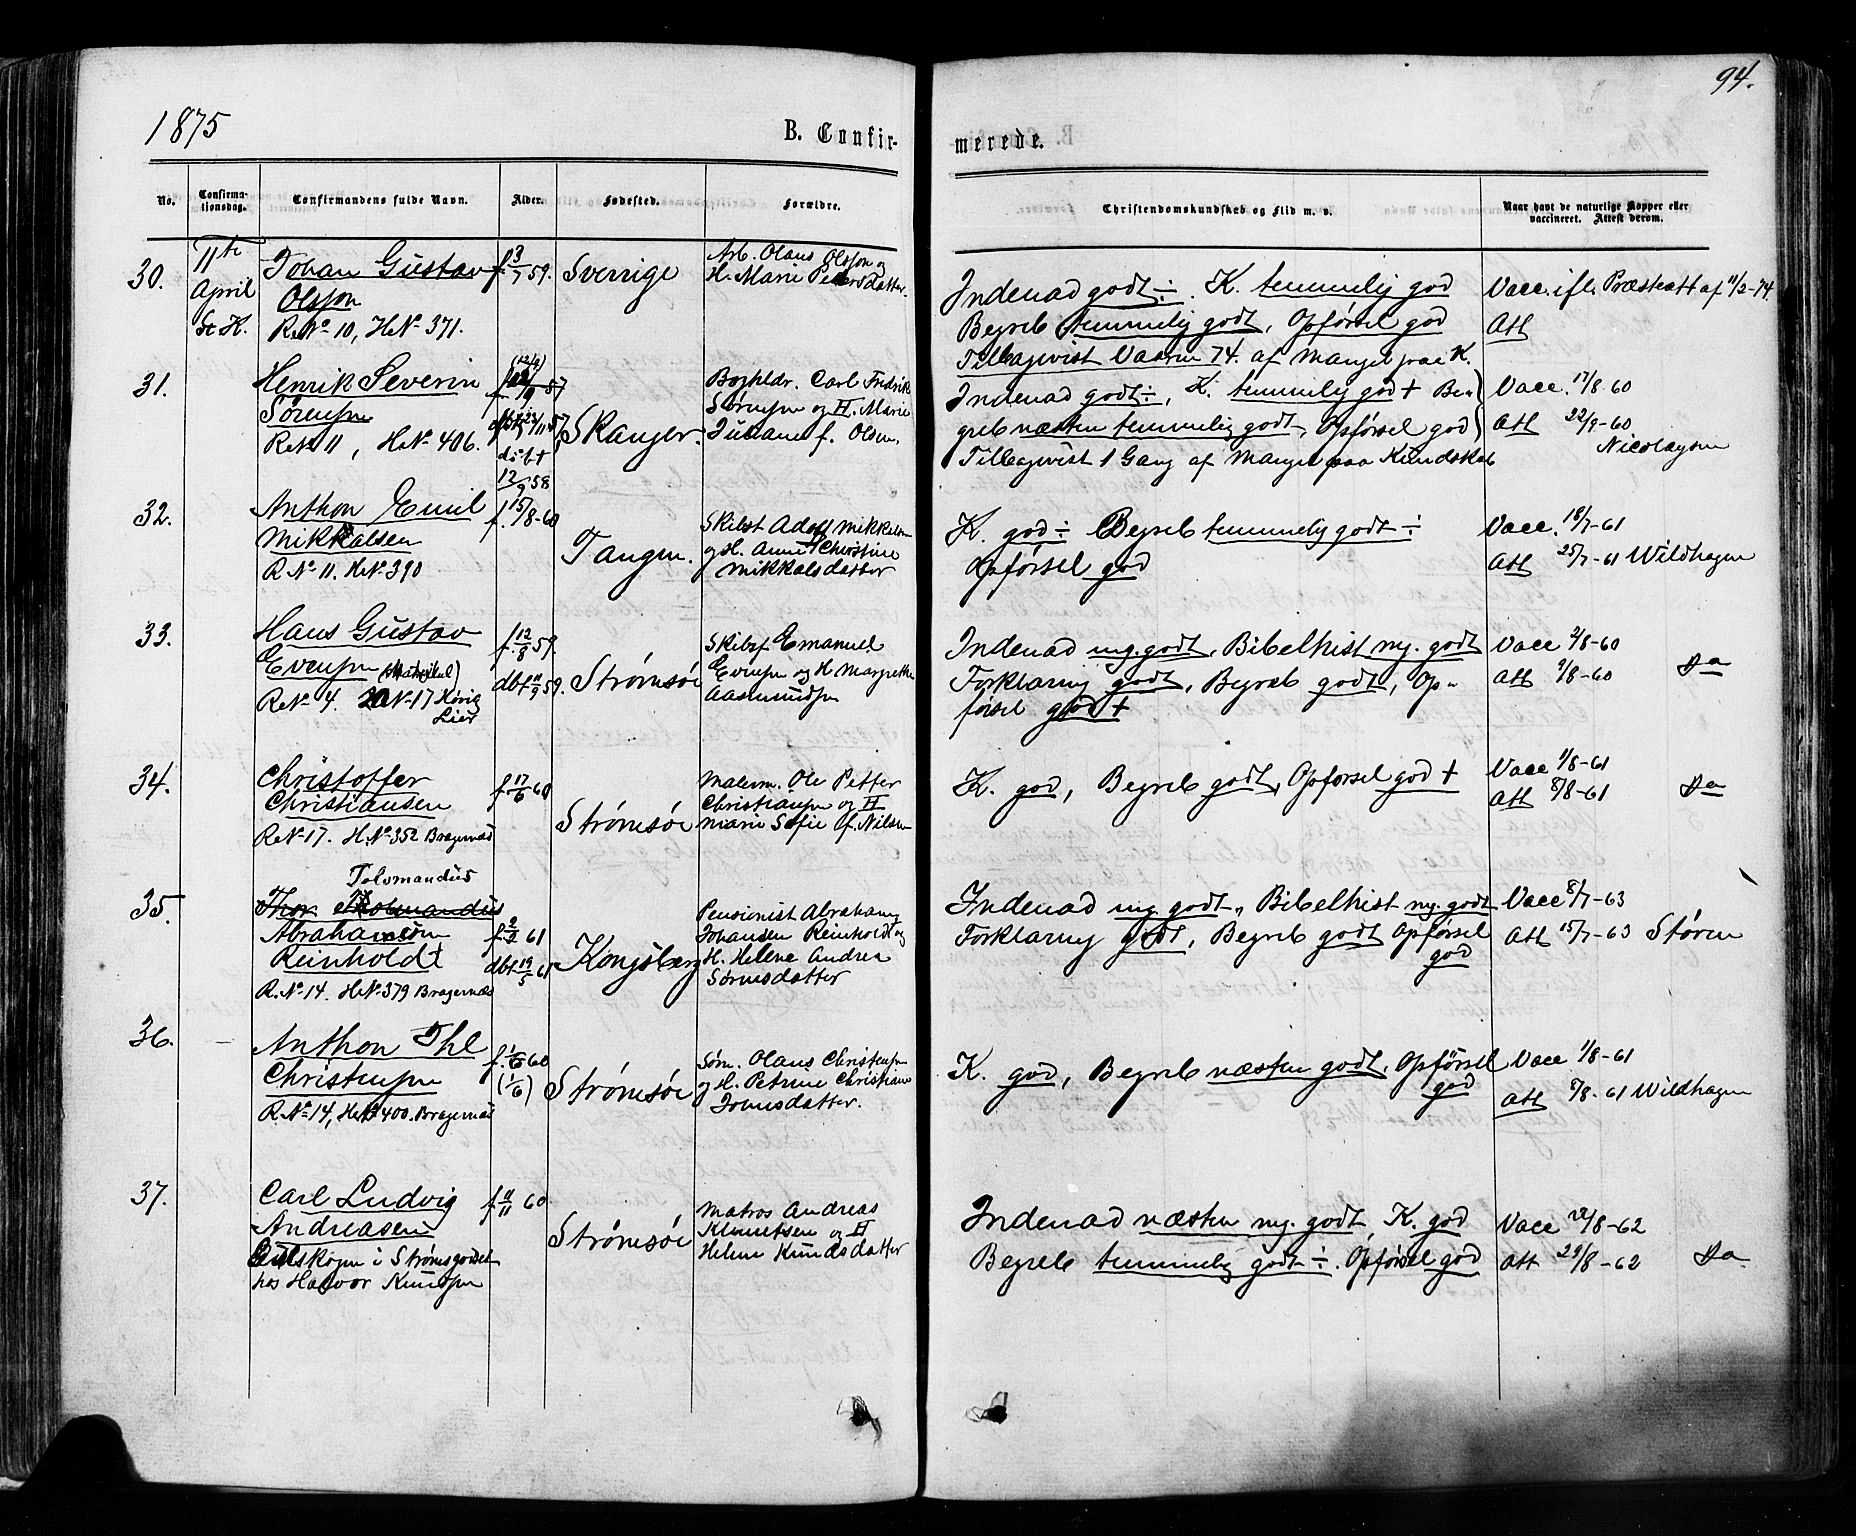 94.
1875
B. Confir-
merede.
No.
Confirma-
tionsdag.
Confirmandens fulde Navn.
Alder.
Fødested.
Forældre.
Christendomskundskab og Flid m. v.
Naar havt de naturlige Kopper eller
vaccineret. Attest derom.
30.
11te
April
St K.
Johan Gustav
Olsson
R.No 10, H.No 371.
f. 3/7 59.
Sverrige
Arb. Olaus Olsson og
H. Marie Petersdatter.
Indenad godt ÷. K. temmelig god
Begreb temmelig godt, Opførsel god
Tilbagevist Vaaren 74. af Mangel paa K.
Vacc. ifl. Præsteatt af 11/2-74.
Att
31.
Henrik Severin
Sørensen
R.No 11, H.No 406.
(12/9)
57
døbt
12/9 58
Skanger.
Boghldr. Carl Fredrik
Sørensen og H. Marie
Juliane f. Olsen.
Indenad godt ÷, K. temmelig god + Be-
greb næsten temmelig godt, Opførsel god
Tilbagevist 1 Gang af Mangel paa Kundskab
Vacc. 17/8-60
Att 22/9-60
Nicolaysen
32.
Anthon Emil
Mikkalsen
R.No 11. H.No 390
f. 15/8-60
Tangen.
Skibst Adolf Mikkalsen
og H. Anne Christine
Mikkalsdatter
K. god ÷ Begreb temmelig godt ÷
Opførsel god
Vacc. 18/7-61
Att 25/7-61 Wildhagen
33.
Hans Gustav
Evensen (Matrikul)
R.No 4. No 17 Hørig
Lier
f. 12/8 59.
dbt 11/9 59.
Strømsøe
Skibsf Emanuel
Evensen og H Margrethe
Aasmundsen
Indenad mg. godt, Bibelhist mg. godt
Forklaring godt, Begreb godt, Op-
førsel god +
Vacc 2/8-60
Att 9/8-60 Da
34.
Christoffer
Christiansen
R.No 17. H.No 352 Bragernæs
f. 17/6 60
Strømsøe
Malerm. Ole Petter
Christiansen og H
Marie Sofie f. Nilsen
K. god, Begreb godt, Opførsel god +
Vacc 1/8-61
Att 8/8-61 Da
35.
Tolomandus
Thor Tholomandus
Abrahamsøn
Reinholdt
R.No 14. H.No 379 Bragernæs
f. 2/2 61
dbt 19/5 61
Kongsberg
Pensionist Abraham
Johansen Reinholdt og
H. Helene Andrea
Sørnsdatter
Indenad mg. godt, Bibelhist mg. godt
Forklaring godt, Begreb godt Opførsel
god
Vacc 8/7-63
Att 15/7-63 Støren
36.
Anthon Thl
Christensen
R.No 14, H.No 400. Bragernæs
f. 1/6 60
(1/6)
Strømsøe
Søm. Olaus Christensen
og H. Petrine Christiane
Johnsdatter.
K. god, Begreb næsten godt, Opførsel
god
Vacc 1/8-61
Att 8/8-61 Wildhagen
37.
Carl Ludvig
Andreasen
Gulskogen i Strømsgodset
hos Halvor Knudsen
f. 11/11 60
Strømsøe
Matros Andreas
Klemetsen og H
Helene Knudsdatter
Indenad næsten mg. godt, K. god
Begreb temmelig godt ÷. Opførsel god
Vacc 22/8-62
Att 29/8-62 Da